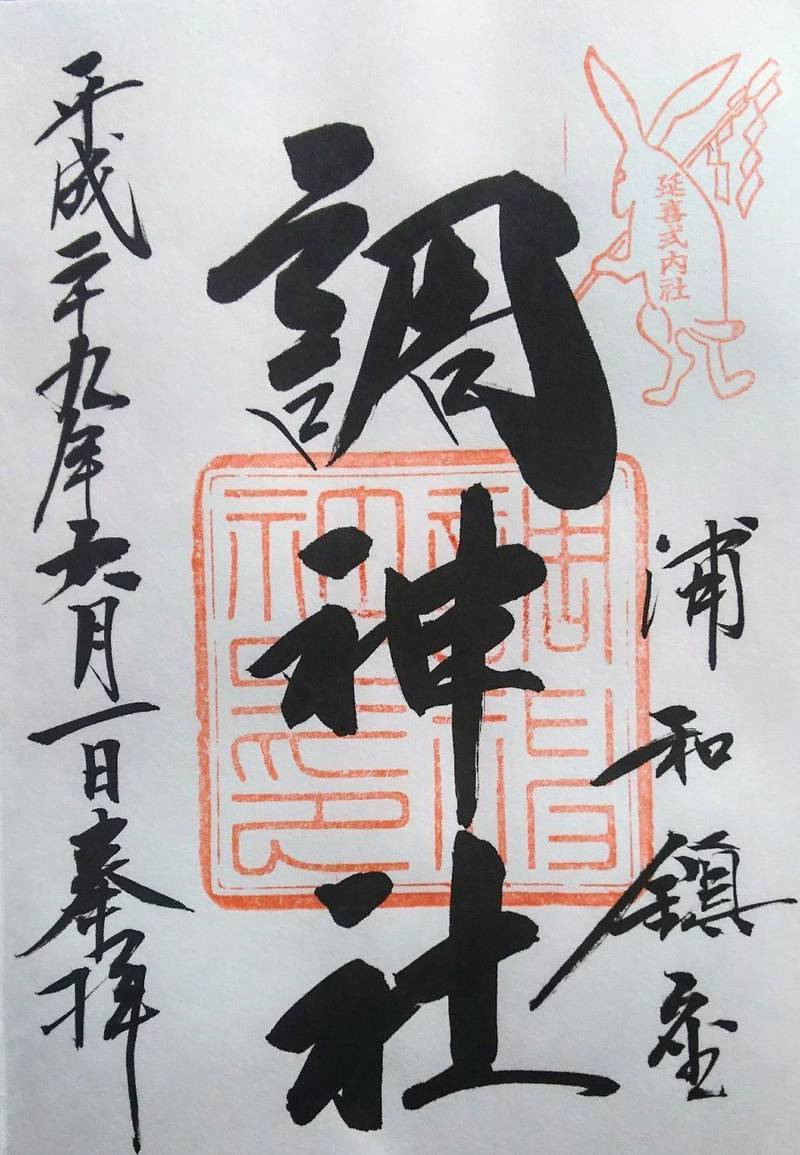 延喜式内社
浦和鎮座
調神社
平成二十九年六月一日奉拝